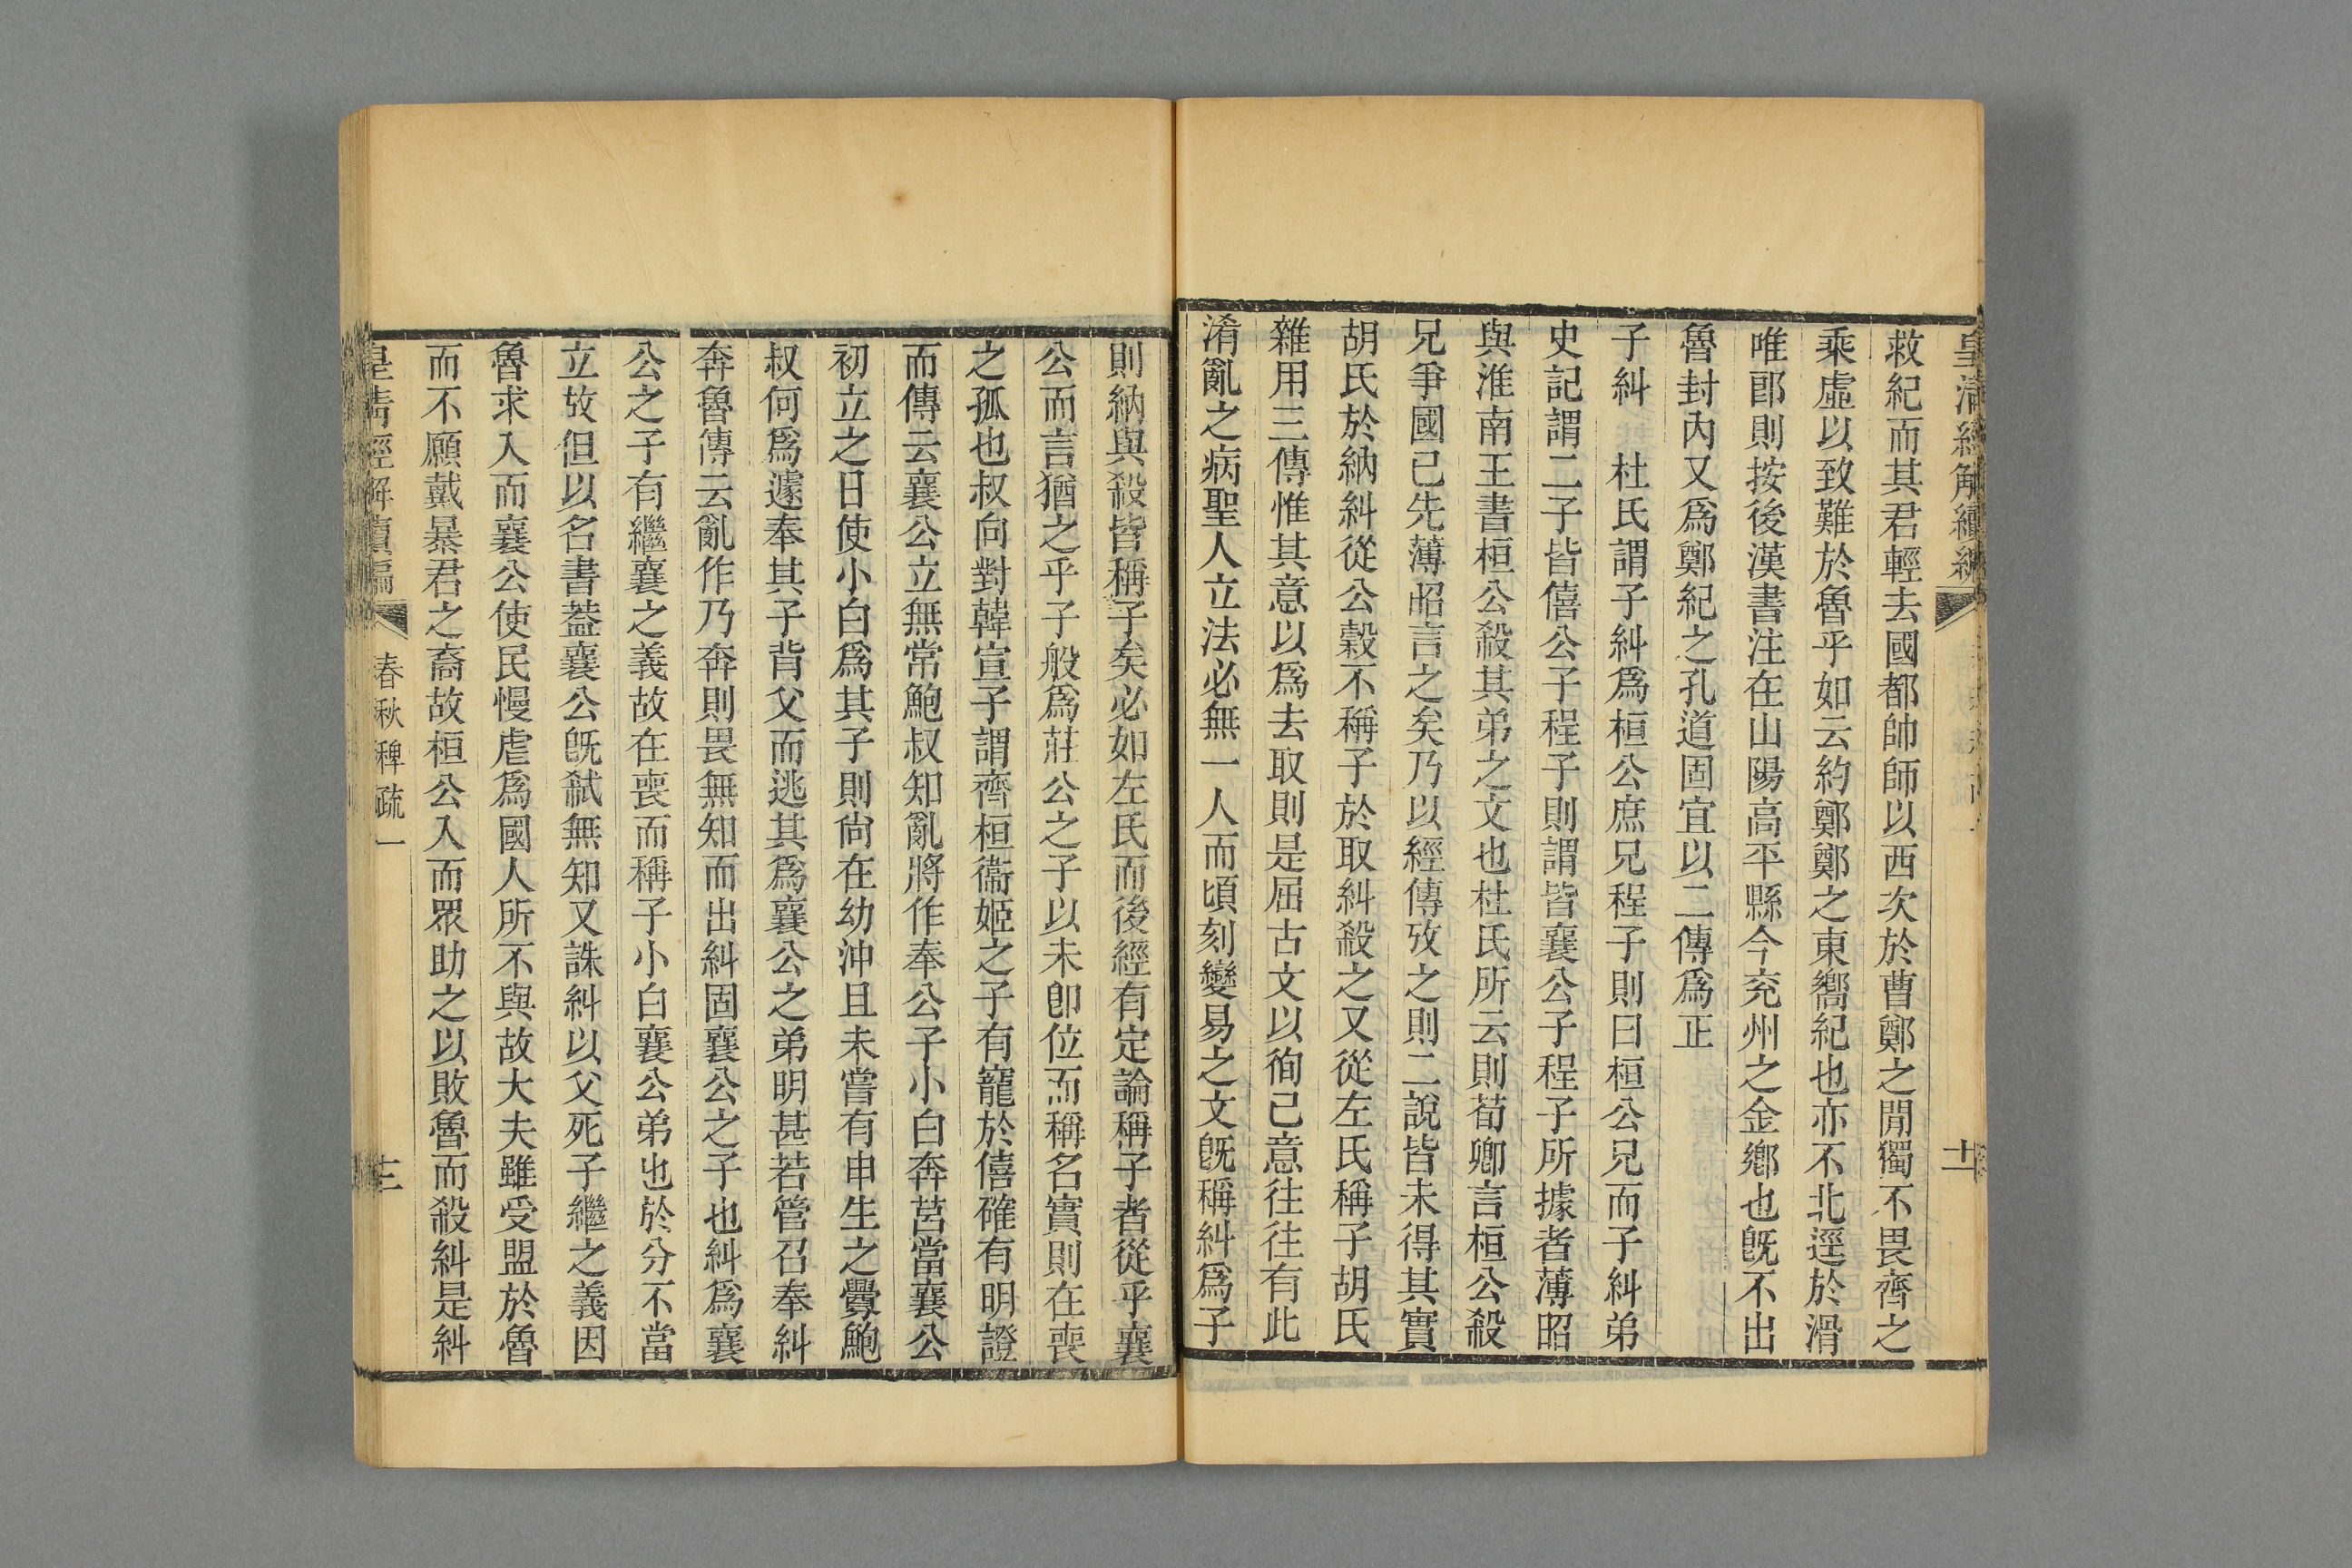 皇清經解續編
十一
救紀而其君輕去國都帥師以西次於曹鄭之閒獨不畏齊之
乘虛以致難於魯乎如云約鄭鄭之東嚮紀也亦不北逕於滑
唯郎則按後漢書注在山陽高平縣今兖州之金鄉也旣不出
魯封內又爲鄭紀之孔道固宜以二傳爲正
子糾 杜氏謂子糾爲桓公庶兄程子則曰桓公兄而子糾弟
史記謂二子皆僖公子程子則謂皆襄公子程子所據者薄昭
與淮南王書桓公殺其弟之文也杜氏所云則荀卿言桓公殺
兄爭國已先薄昭言之矣乃以經傳攷之則二說皆未得其實
胡氏於納糾從公穀不稱子於取糾殺之又從左氏稱子胡氏
雜用三傳惟其意以爲去取則是屈古文以徇己意往往有此
淆亂之病聖人立法必無一人而頃刻變易之文旣稱糾爲子
則納與殺皆稱子矣必如左氏而後經有定論稱子者從乎襄
公而言猶之乎子般爲莊公之子以未卽位而稱名實則在喪
之孤也叔向對韓宣子謂齊桓衞姬之子有寵於僖確有明證
而傳云襄公立無常鮑叔知亂將作奉公子小白奔莒當襄公
初立之日使小白爲其子則尙在幼沖且未嘗有申生之釁鮑
叔何爲遽奉其子背父而逃其爲襄公之弟明甚若管召奉糾
奔魯傳云亂作乃奔則畏無知而出糾固襄公之子也糾爲襄
公之子有繼襄之義故在喪而稱子小白襄公弟也於分不當
立故但以名書葢襄公旣弒無知又誅糾以父死子繼之義因
魯求入而襄公使民慢虐爲國人所不與故大夫雖受盟於魯
而不願戴暴君之裔故桓公入而眾助之以敗魯而殺糾是糾
皇清經解續編
春秋稗疏一
三